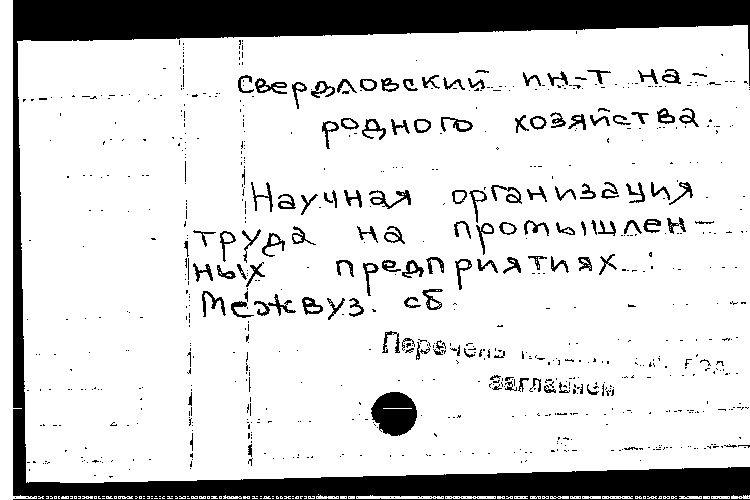 Свердловский ин-т на-
родного хозяйства.
Научная организация
труда на промышлен-
ных предприятиях :
Межвуз. сб.
Перечень под
заглавием